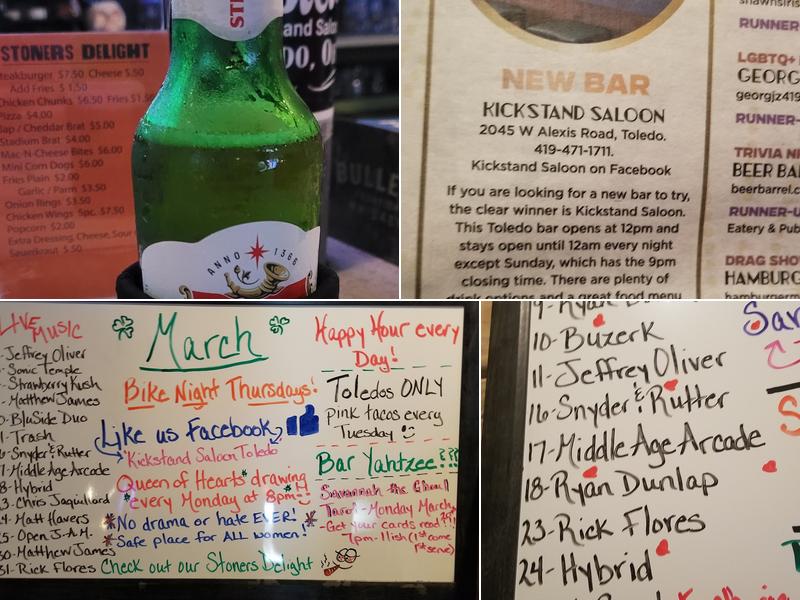 STONERS DELIGHT
Steakburger $7.50 Cheese $.50
Add Fries $1.50
Chicken Chunks $6.50 Fries $1.50
Pizza $4.00
/ Cheddar Brat $5.00
Stadium Brat $4.00
Mac-N-Cheese Bites $6.00
Mini Corn Dogs $6.00
Fries Plain $2.00
Garlic / Parm $3.50
Onion Rings $3.50
Chicken Wings 5pc. $7.50
Popcorn $2.00
Extra Dressing, Cheese, Sour
Sauerkraut $.50
ANNO 1366
and Salo
DO, O
BULLE
NEW BAR
KICKSTAND SALOON
2045 W Alexis Road, Toledo.
419-471-1711.
Kickstand Saloon on Facebook
If you are looking for a new bar to try,
the clear winner is Kickstand Saloon.
This Toledo bar opens at 12pm and
stays open until 12am every night
except Sunday, which has the 9pm
closing time. There are plenty of
drink options and a great food menu
RUNNER
LGBTQ+
GEORG
georgjz419
RUNNER-
TRIVIA NI
BEER BA
beerbarrel.c
RUNNER-U
Eatery & Pub
DRAG SHO
HAMBURG
hamburgerm
LIVE MUSIC
-Jeffrey Oliver
-Sonic Temple
-Strawberry Kush
-Matthew James
0-BluSide Duo
1-Trash
6-Snyder & Rutter
7-Middle Age Arcade
8-Hybrid
3-Chris Jaquillard
4-Matt Havers
5-Open J.A.M.
30-Matthew James
31-Rick Flores
March
Bike Night Thursdays!
Like us Facebook
Kickstand Saloon Toledo
Queen of Hearts drawing
every Monday at 8pm
*No drama or hate EVER!*
*Safe place for ALL women!
Check out our Stoners Delight
Happy Hour every
Day!
Toledos ONLY
pink tacos every
Tuesday
Bar Yahtzee???
Savannah the Ghoul
Tarot-Monday March
-Get your cards read
7pm-11ish (1st come
1st serve)
10-Buzerk
11-Jeffrey Oliver
16-Snyder & Rutter
17-Middle Age Arcade
18-Ryan Dunlap
23-Rick Flores
24-Hybrid
Sav